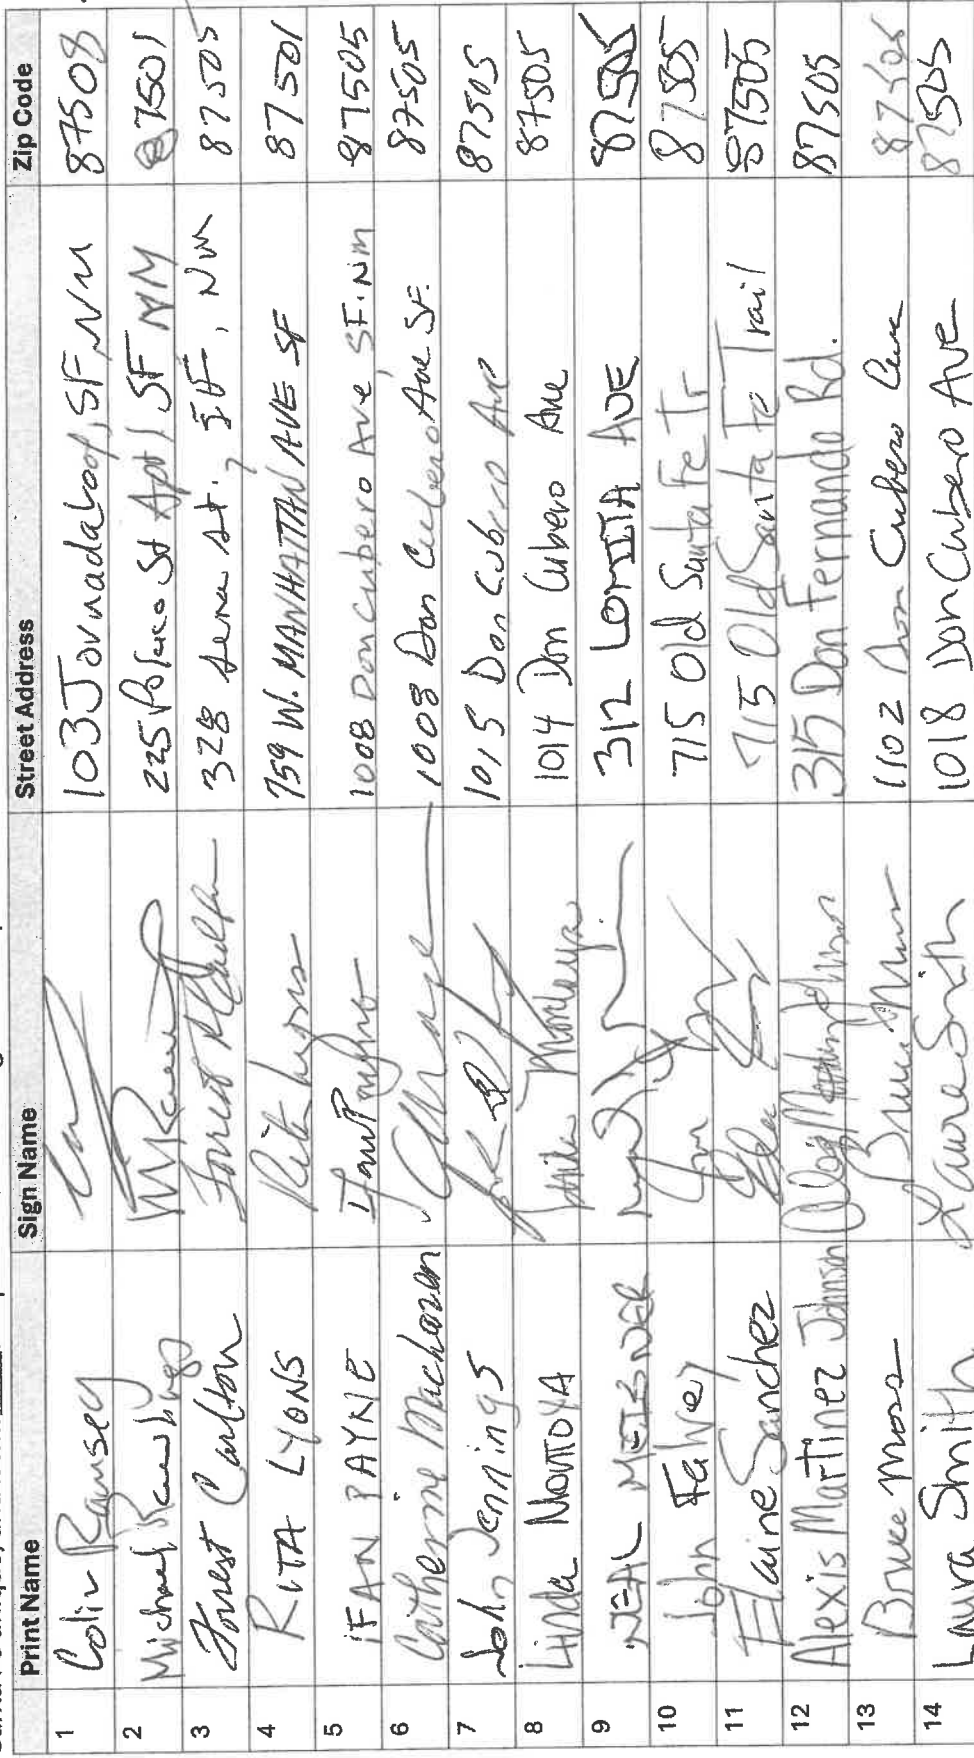 Print Name Sign Name Street Address Zip Code
1 Colin Ramsey 103 Jornada Loop, SF, NM 87508
2 Michael 225 St Apt 1, SF NM 87501
3 Forrest Carlton 328 Sena St., SF, NM 87505
4 RITA LYONS Rita Lyons 759 W. MANHATTAN AVE SF 87501
5 IFAN PAYNE Ifan Payne 1008 Don Cubero Ave, SF. NM 87505
6 Catherine 1008 Don Cubero Ave SF. 87505
7 John Jennings 1015 Don Cubero Ave 87505
8 Linda MONTOYA Linda Montoya 1014 Don Cubero Ave 87505
9 NEAL 312 LOMITA AVE 87505
10 John Falvey 715 Old Santa Fe Tr 87505
11 Elaine Sanchez 715 Old Santa Fe Trail 87505
12 Alexis Martinez Johnson 315 Don Fernando Rd. 87505
13 Bruce Moss 1102 Don Cubero 87505
14 Laura Smith Laura Smith 1018 Don Cubero Ave 87505